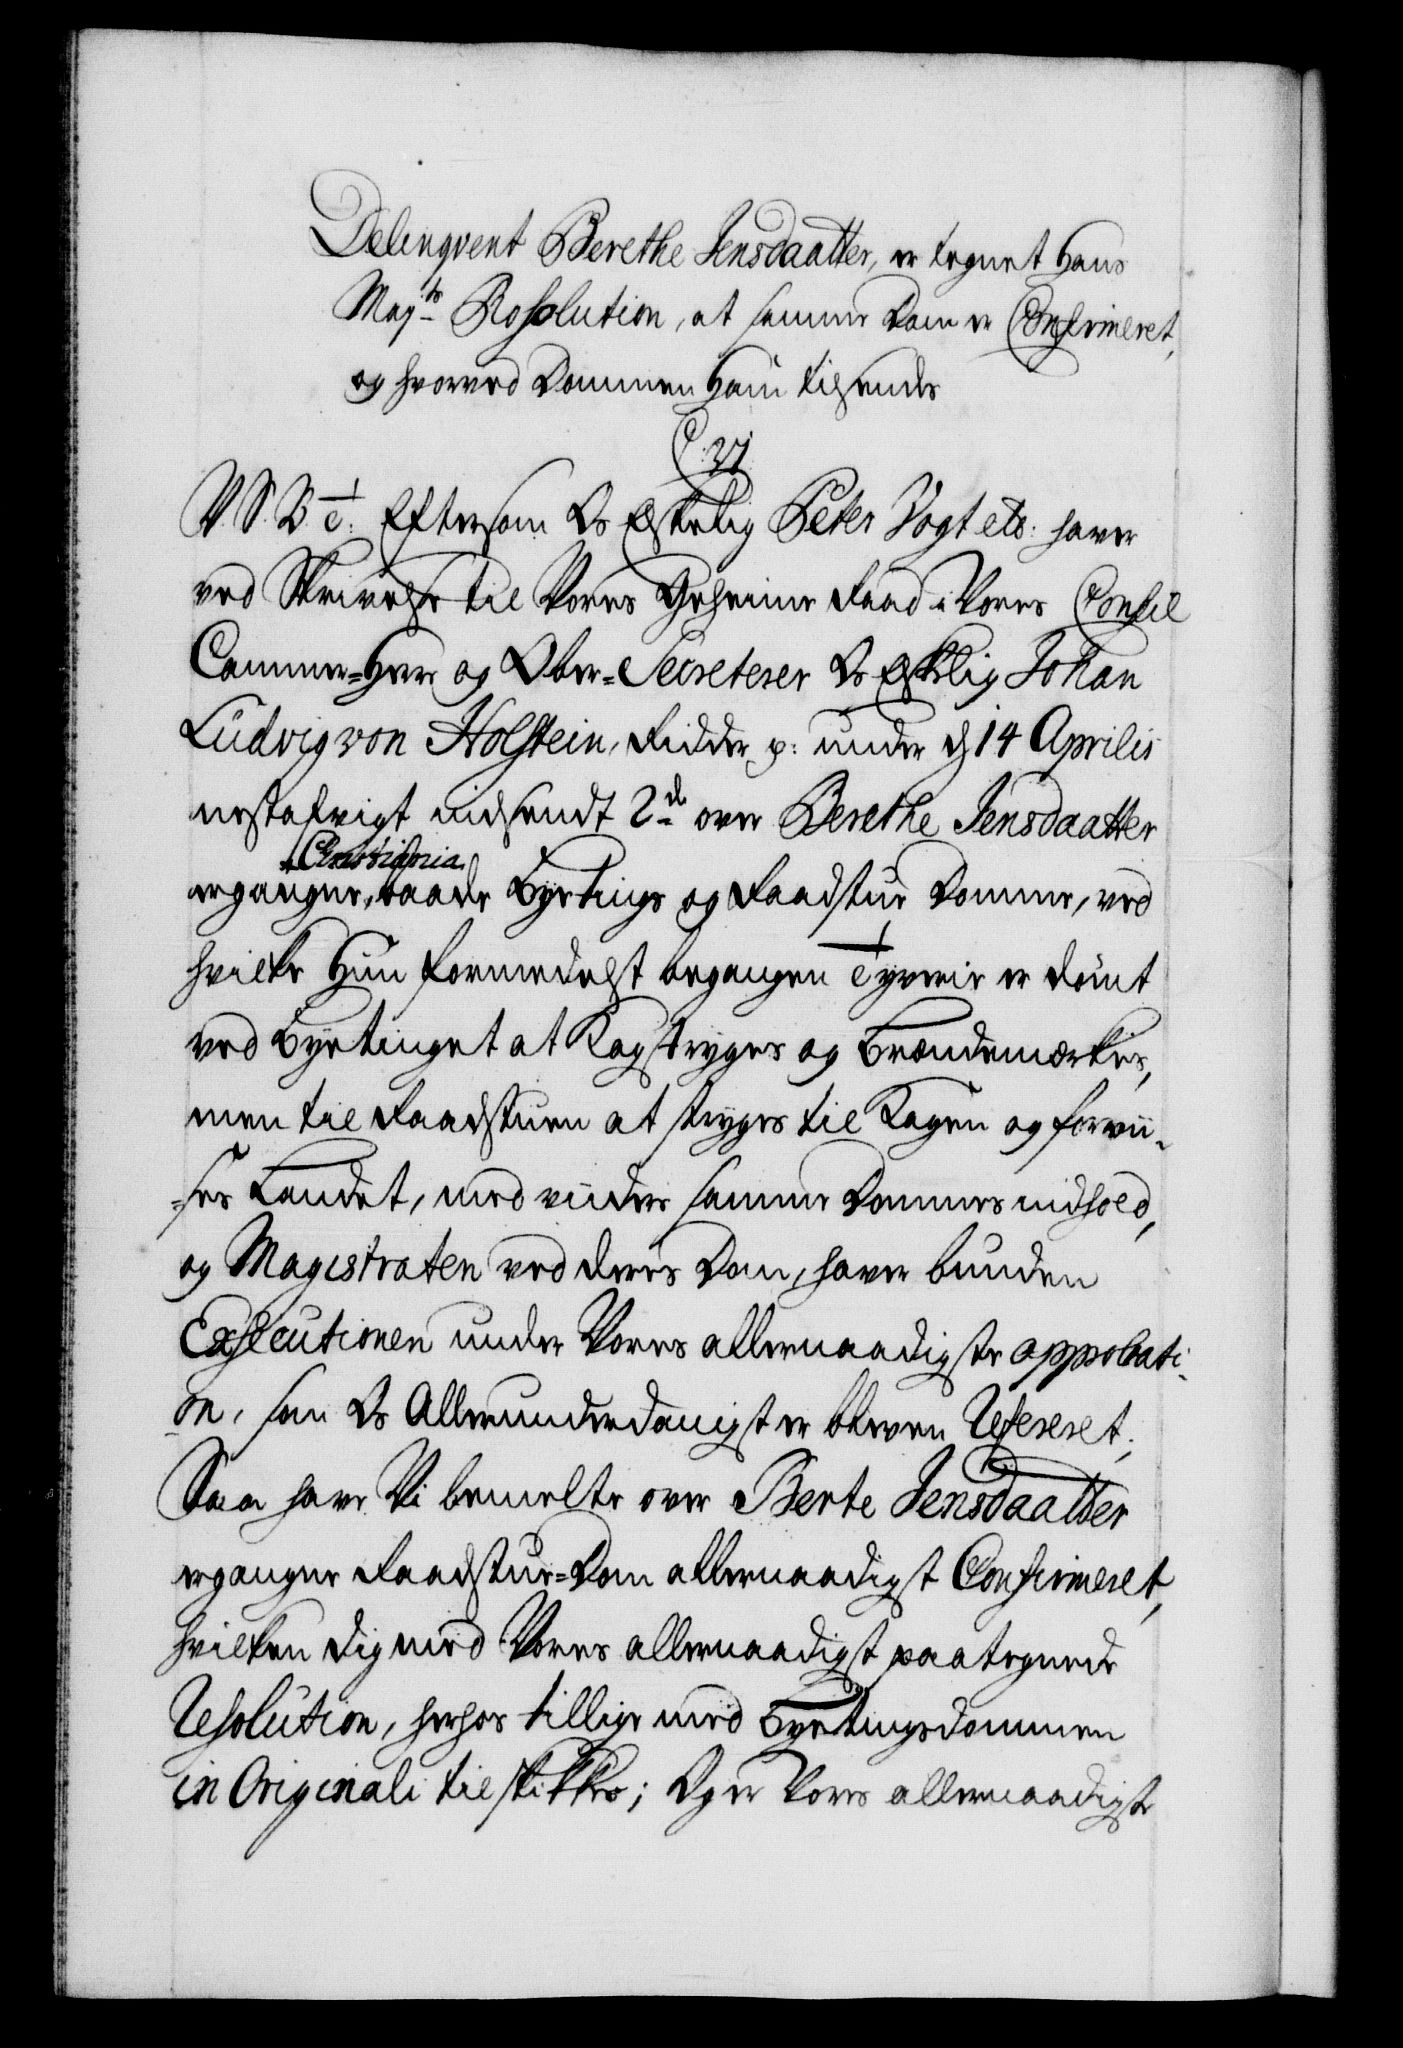 Delinqvent Berethe Jensdaatter, er tegnet Hans
Maj:ts Resolution, at samme Dom er Confirmeret,
og hvorved Dommen ham tilsendes
C. VI.
V. S. B. T. Eftersom Os Elskelig Peter Vogt etc: haver
ved Skrivelse til Vores Geheime Raad i Vores Conseil
Cammer=Herre og Ober=Secreterer Os Elskelig Johan
Ludvig von Holstein, Ridder p: under d 14 Aprilis
nestafvigt indsendt 2de over Berethe Jensdaatter
ergangne, baade Byetings og Raadstue Domme, ved
hvilke Hun formedelst begangen Tyverie er dømt
ved Byetinget at Kagstryges og Brændemærkes,
men til Raadstuen at stryges til Kagen og forvii-
=ses Landet, med viidere samme Dommes indhold,
og Magistraten ved deres Dom, haver bunden
Executionen under Vores allernaadigste approbati-
-on, som Os Allerunderdanigst er bleven Refereret;
Saa have Vi bemelte over Berte Jensdaatter
ergangne Raadstue=Dom allernaadigst Confirmeret,
hvilken dig med Vores allernaadigst paategnede
Resolution, herhos tillige med Byetingsdommen
in Originali tilstikkes; Og er Vores allernaadigste